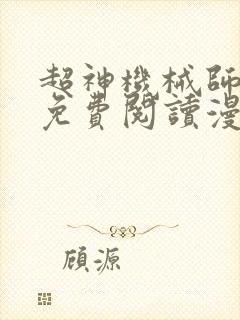 超神機械師
免費閱讀漫
顧源